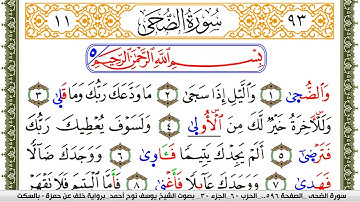 ٩٣ سُورَةُ الضُّحَى ١١
بِسْمِ اللَّهِ الرَّحْمَٰنِ الرَّحِيمِ ٥
وَالضُّحَىٰ ١ وَالَّيْلِ إِذَا سَجَىٰ ٢ مَا وَدَّعَكَ رَبُّكَ وَمَا قَلَىٰ ٣
وَلَلْآخِرَةُ خَيْرٌ لَّكَ مِنَ الْأُولَىٰ ٤ وَلَسَوْفَ يُعْطِيكَ رَبُّكَ
فَتَرْضَىٰ ٥ أَلَمْ يَجِدْكَ يَتِيمًا فَآوَىٰ ٦ وَوَجَدَكَ ضَآلًّا
فَهَدَىٰ ٧ وَوَجَدَكَ عَآئِلًا فَأَغْنَىٰ ٨ فَأَمَّا الْيَتِيمَ فَلَا تَقْهَرْ
سورة الضحى . الصفحة ٥٩٦ . الحزب ٦٠ . الجزء ٣٠ . بصوت الشيخ يوسف نوح أحمد . برواية خلف عن حمزة - بالسكت